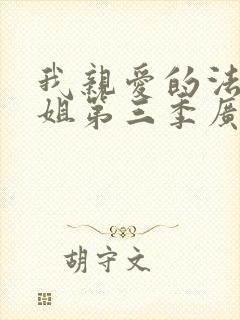 我親愛的法
姐第三季廣
胡守文